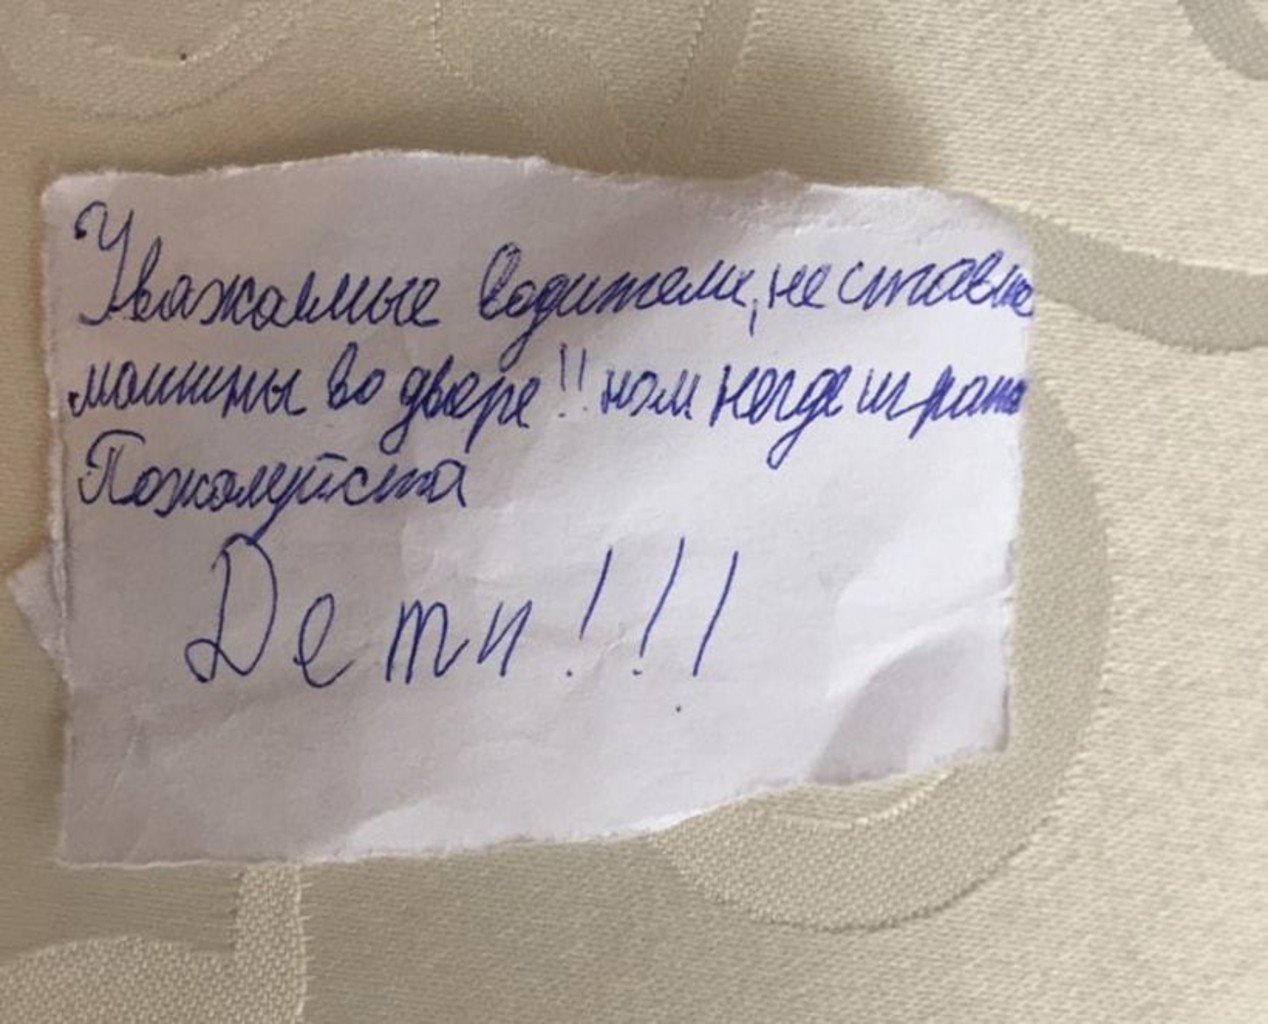 Уважаемые водители, не ставте
машины во дворе!! нам негде играть
Пожалуйста
Дети!!!